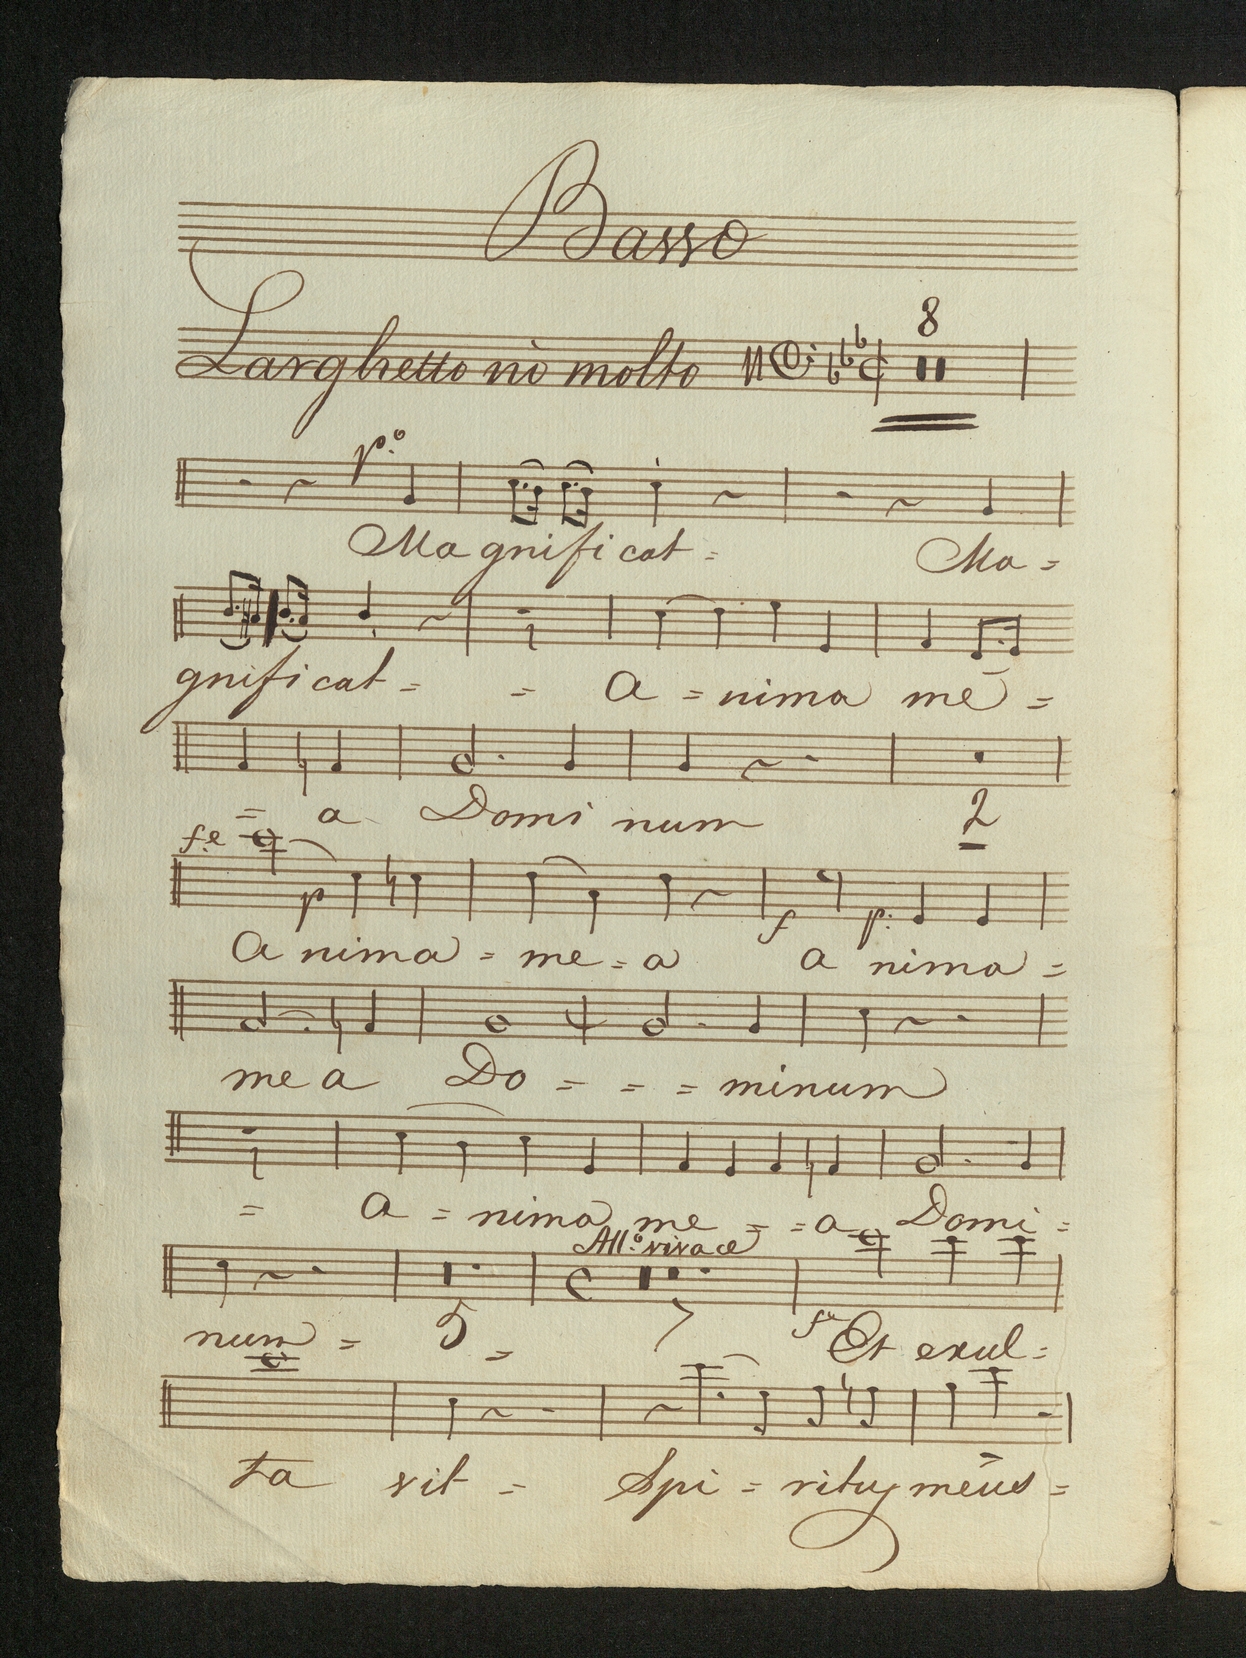 Basso
8
Larghetto nò molto
p.º
Magnificat = Ma =
gnificat = = A = nima me =
= a Domi num 2
fe p f p:
A nima = me = a a nima =
me a Do = = = minum
= A = nima me = = a Domi =
All.º vivace
num = 5 = 7 fe Et exul =
ta vit = Spi = ritus meus =